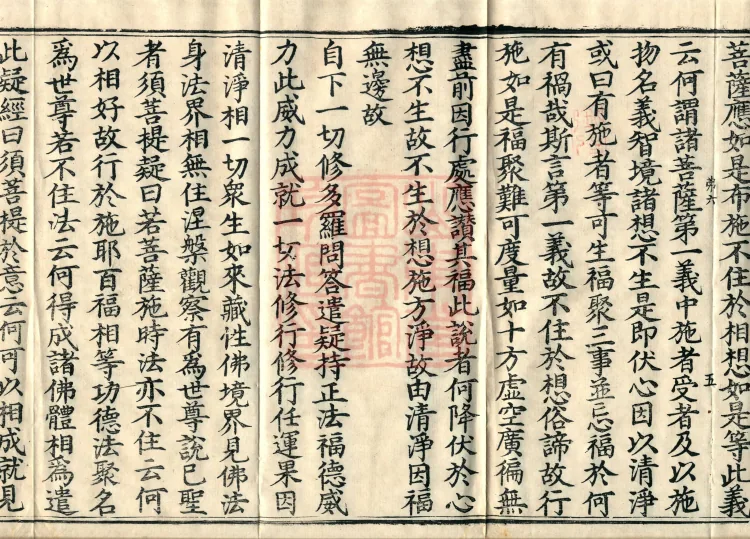 菩薩應如是布施不住於相想如是等此義
云何謂諸菩薩第一義中施者受者及以施
物名義智境諸想不生是即伏心因以清淨
或曰有施者等可生福聚三事並忘福於何
有禍哉斯言第一義故不住於想俗諦故行
施如是福聚難可度量如十方虛空廣徧無
盡前因行處應讚其福此說者何降伏於心
想不生故不生於想施方淨故由清淨因福
無邊故
自下一切修多羅問答遣疑持正法福德威
力此威力成就一切法修行修行任運果因
清淨相一切衆生如來藏性佛境界見佛法
身法界相無住涅槃觀察有爲世尊說已聖
者須菩提疑曰若菩薩施時法亦不住云何
以相好故行於施耶百福相等功德法聚名
爲世尊若不住法云何得成諸佛體相爲遣
此疑經曰須菩提於意云何可以相成就見
弗六
五